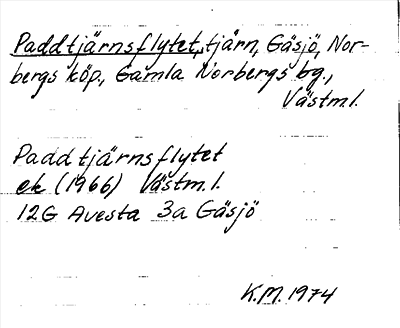 Paddtjärnsflytet, tjärn, Gäsjö, Nor-
bergs köp., Gamla Norbergs bg.,
Västml.
Paddtjärnsflytet
ek (1966) Västm.l.
12G Avesta 3a Gäsjö
K.M. 1974